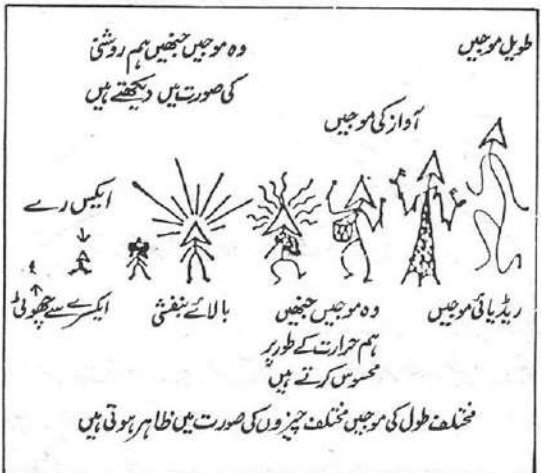 طویل موجیں
وہ موجیں جنھیں ہم روشنی
کی صورت میں دیکھتے ہیں
آواز کی موجیں
ایکس رے
ریڈیائی موجیں
وہ موجیں جنھیں
ہم حرارت کے طور پر
محسوس کرتے ہیں
بالائے بنفشی
ایکسرے سے چھوٹی
مختلف طول کی موجیں مختلف چیزوں کی صورت میں ظاہر ہوتی ہیں